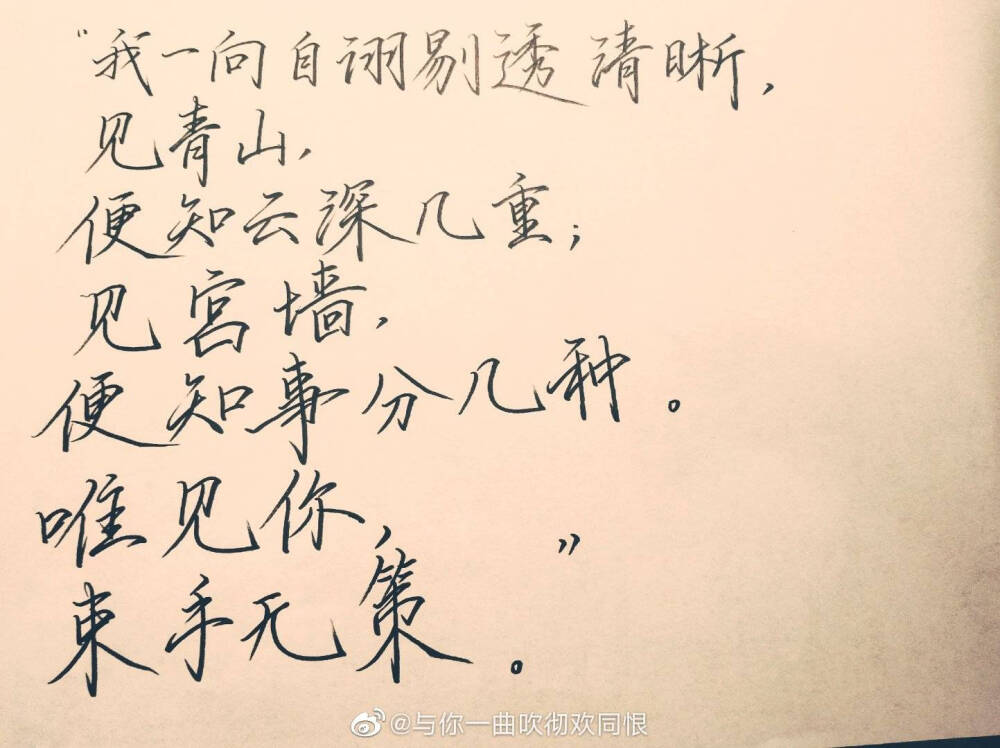 “我一向自诩剔透清晰，
见青山，
便知云深几重；
见宫墙，
便知事分几种。
唯见你，
束手无策。”
@与你一曲吹彻欢同恨